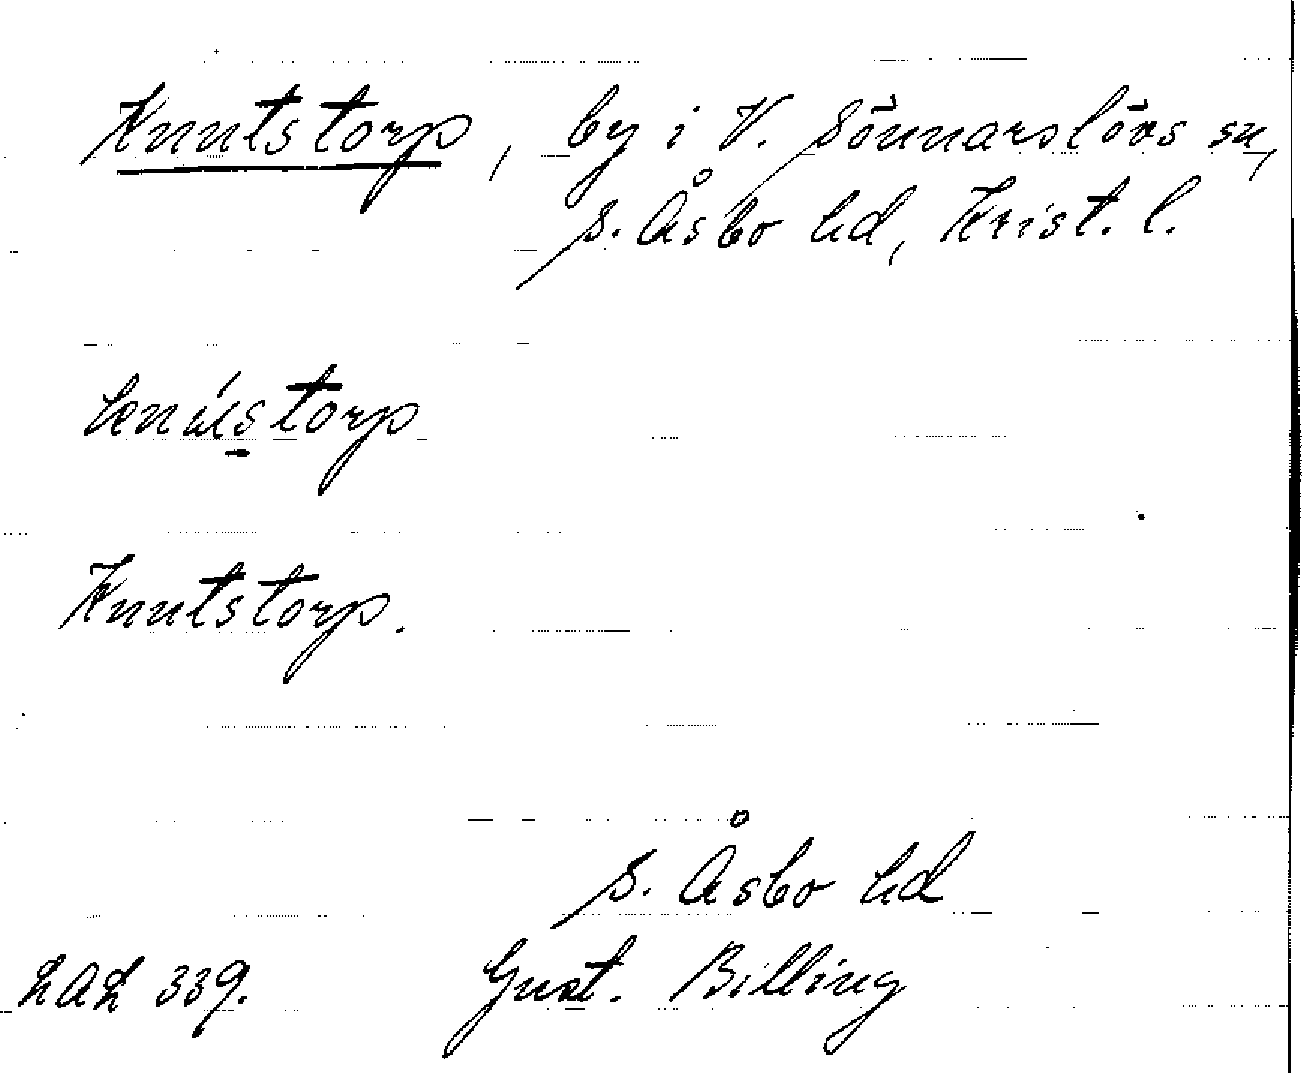 Knutstorp, by i V. Sönnarslövs sn,
S. Åsbo hd, Krist. l.
Knutstorp.
S. Åsbo hd
LAL 339. Gust. Billing